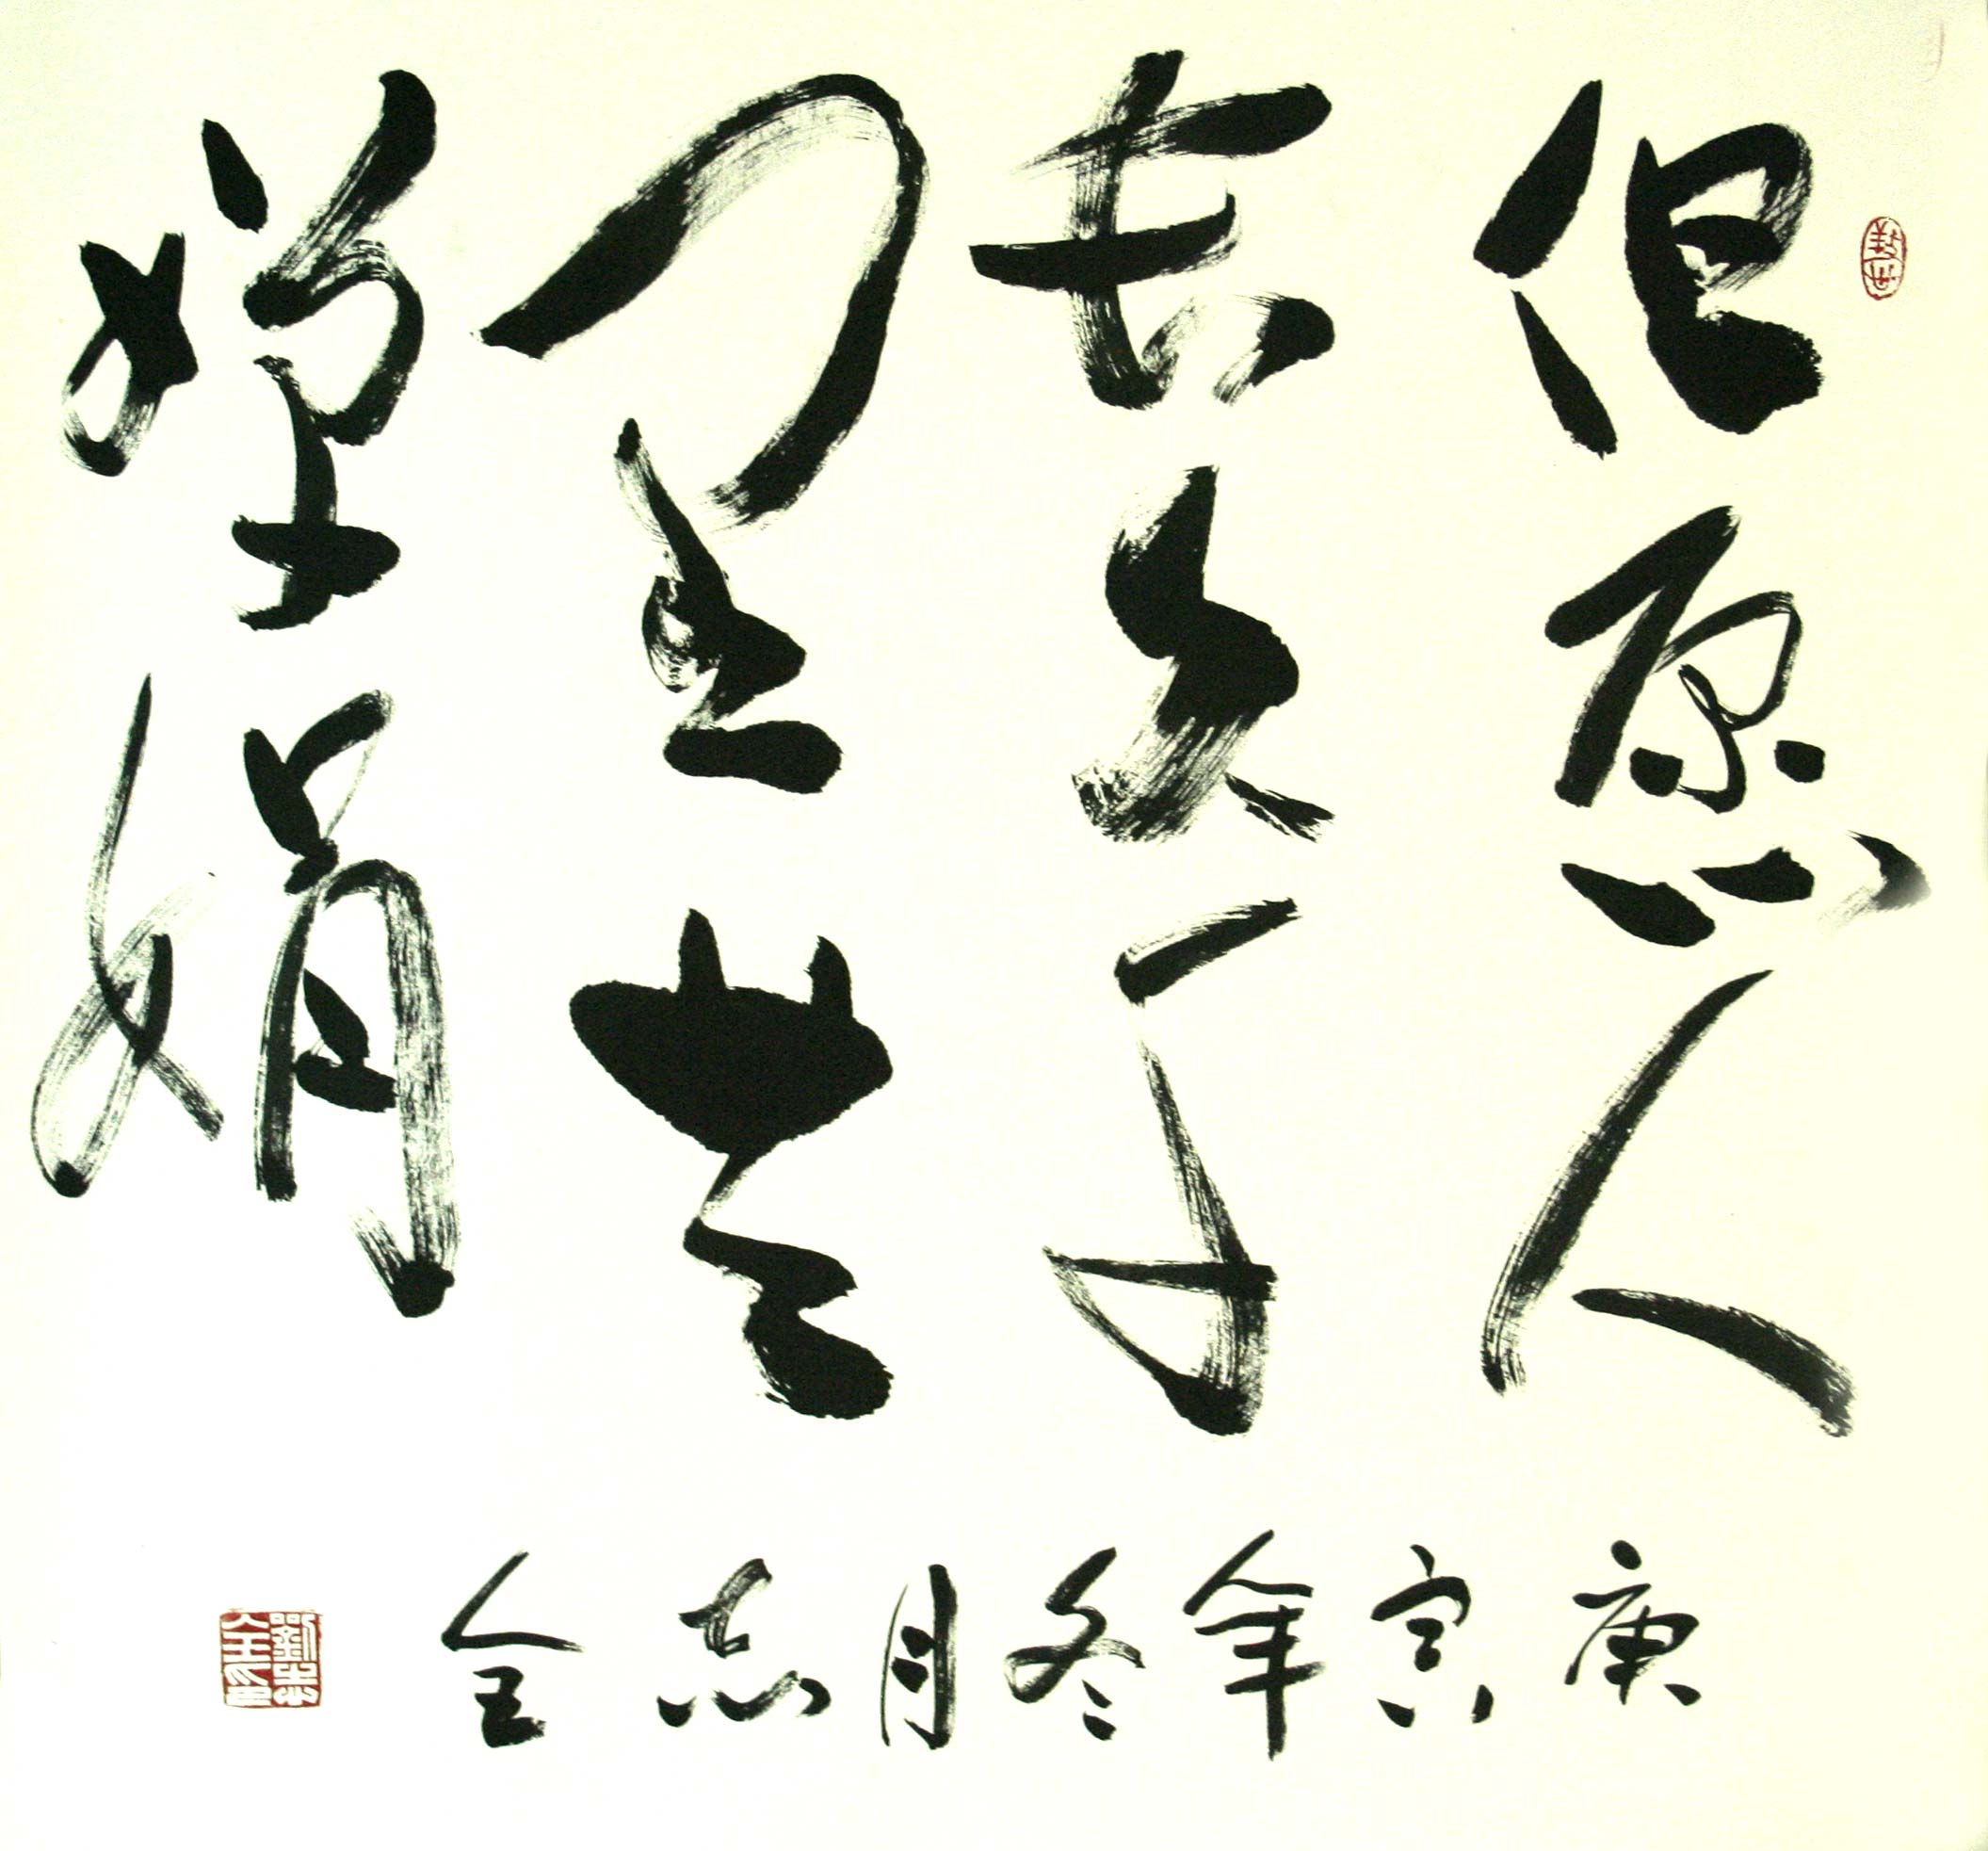 但愿人
长久千
里共
婵娟
庚寅年冬月志全
刘志全印